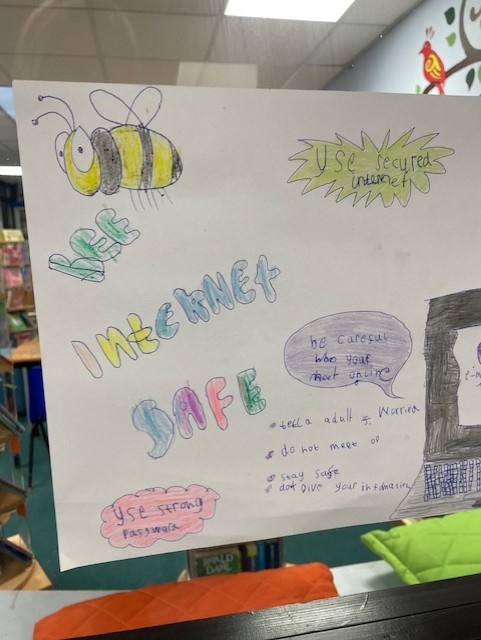 Use secured
internet
BEE
INTERNET
SAFE
be careful
who your
meet online
tell a adult if Worried
do not meet up
stay safe
dont give your infomation
Use strong
Password
ROALD
DAHL